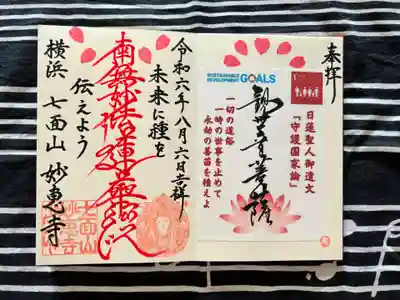 奉拝
日蓮聖人御遺文
『守護国家論』
SUSTAINABLE
DEVELOPMENT
GOALS
観世音菩薩
一切の道俗
一時の世事を止めて
永劫の善苗を種えよ
令和六年八月六日吉祥
未来に種を
南無妙法蓮華経
伝えよう
横浜 七面山 妙恵寺